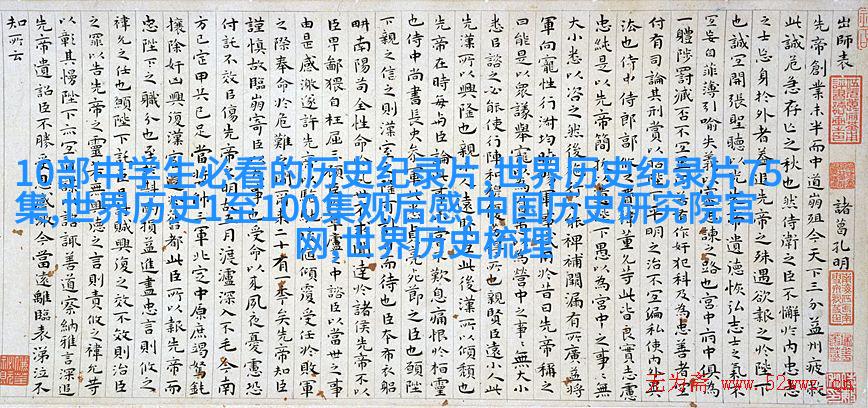 出師表 諸葛孔明
先帝創業未半而中道崩殂今天下三分益州疲敝
此誠危急存亡之秋也然侍衛之臣不懈於內忠志
之士忘身於外者蓋追先帝之殊遇欲報之於陛下
也誠宜開張聖聽以光帝遺德恢弘志士之氣不
宜妄自菲薄引喻失義忠諫之路也宮中府中俱為
一體陟罰臧否不宜異作奸犯科及為忠善者宜
付有司論其刑賞以昭平明之治不宜偏私使內外異
法也侍中侍郎郭董允等此皆良實志慮
忠純是以先帝簡拔陛下愚以為宮中之事〻無
大小悉以咨之然後施行裨補闕漏有所廣益將
軍向寵性行淑均於昔日先帝稱之
曰能是以眾議舉寵為為營中之事〻無大小
悉以諮之必能使行陣和穆也親賢臣遠小人此
先漢所以興隆也親小人此後漢所以傾頹也
先帝在時每與臣論此事歎息痛恨於桓靈
也侍中尚書長史參軍亮死節之臣也願陛
下親之信之則漢室而待也臣本布衣躬
耕南陽苟全性命達於諸侯先帝不以
臣卑鄙猥自枉屈三顧中諮臣以當世之事
由是感激遂許先帝值傾覆受任於敗軍
之際奉命於危難二十有一年矣先帝知臣
謹慎故臨崩寄臣事也受命以來夙夜憂慮恐
付託不效以傷先帝之明月渡瀘深入不毛今南
方已定甲兵已足當帥三軍北定中原庶竭駑鈍
攘除奸凶興復漢都此臣所以報先帝而
忠陛下之職分也至損益進盡忠言則攸之
禕允之任也願陛下託臣以賊興復之效不效則治臣
之罪以告先帝之靈若無興德之言則責攸之禕允等
以彰其慢陛下亦宜自諮諏善道察納雅言深追
先帝遺詔臣不勝受恩感激今當遠離臨表涕泣不
知所云
10部中学生必看的历史纪录片,世界历史纪录片75
集,世界历史1至100集观后感,中国历史研究院官
网,世界历史梳理
无为斋 www.52wwz.cn